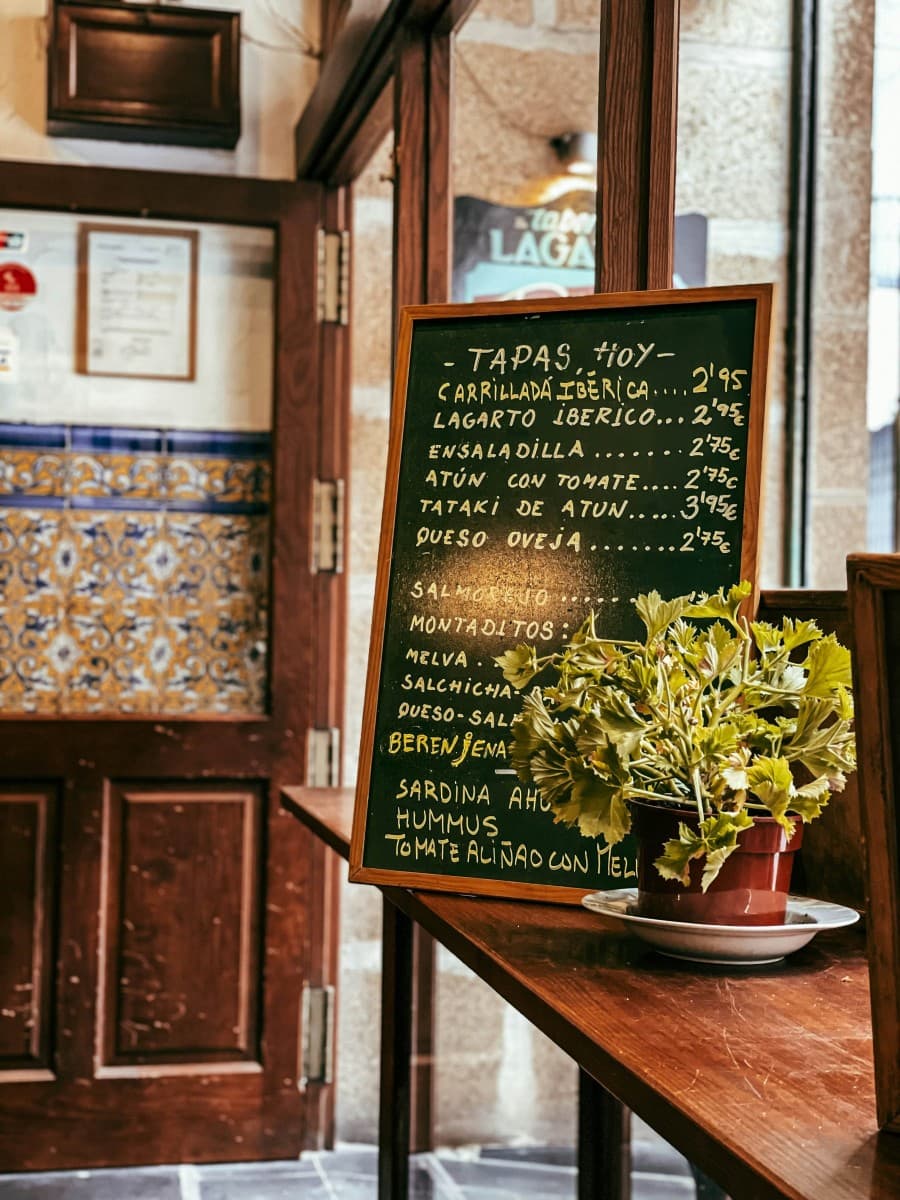 LAGA
- TAPAS, HOY -
CARRILLADA IBÉRICA.... 2'95
LAGARTO IBERICO... 2'95€
ENSALADILLA ....... 2'75€
ATÚN CON TOMATE.... 2'75€
TATAKI DE ATUN..... 3'95€
QUESO OVEJA ....... 2'75€
SALMOREJO ......
MONTADITOS:
MELVA .
SALCHICHA-
QUESO-SAL
BERENJENA
SARDINA AHU
HUMMUS
TOMATE ALIÑAO CON MEL